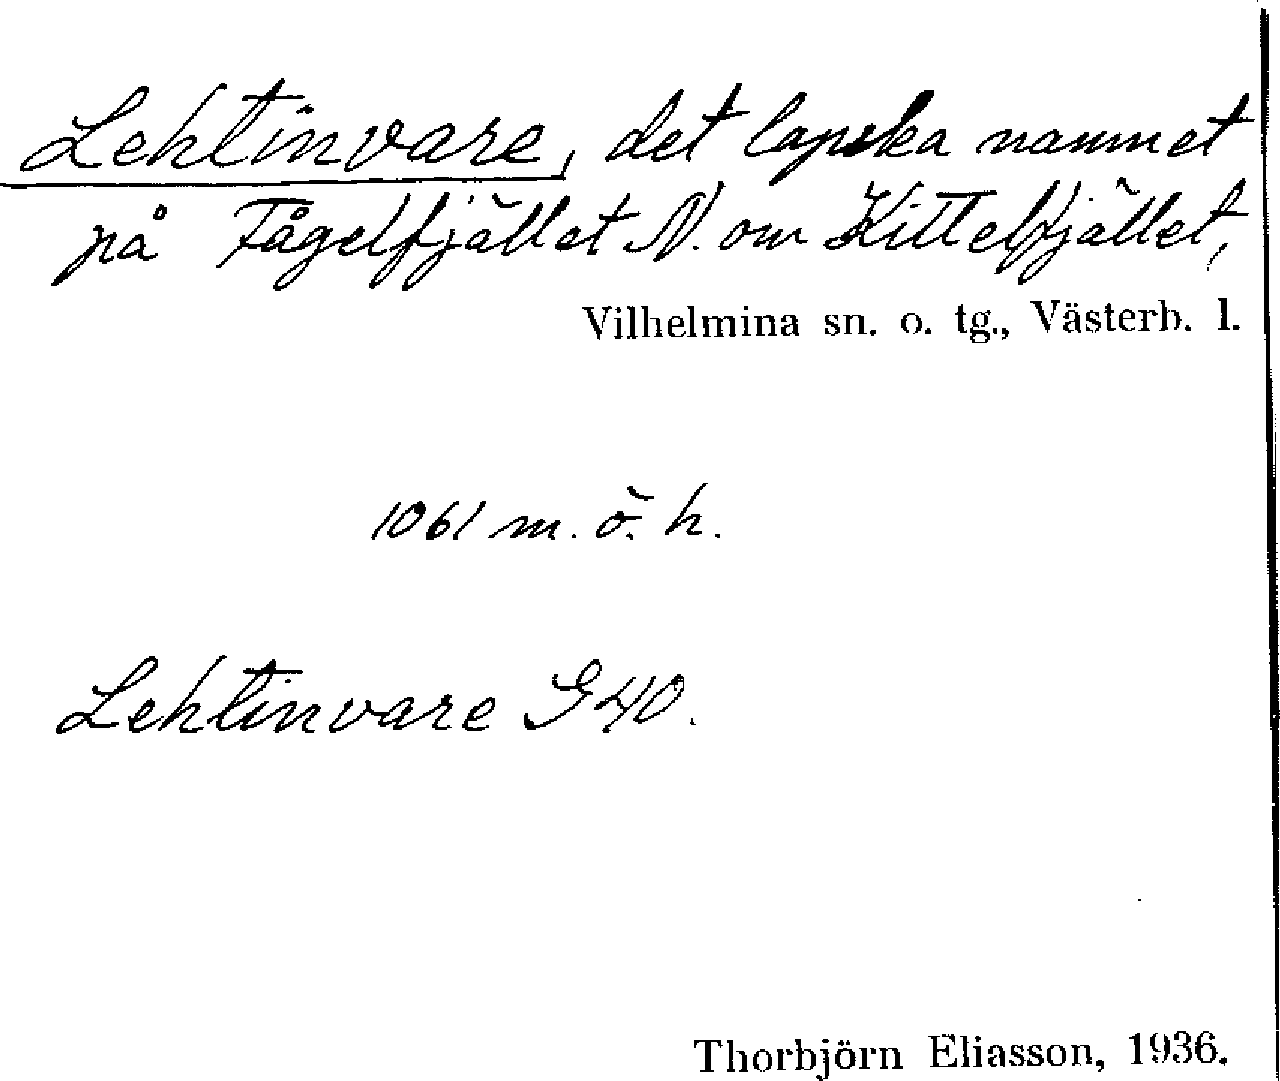 Lehtinvare, det lapska namnet
på Fågelfjället N. om Kittelfjället,
Vilhelmina sn. o. tg., Västerb. l.
1061 m. ö. h.
Lehtinvare G40.
Thorbjörn Eliasson, 1936.